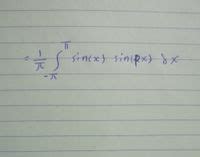 = 1/π ∫_{-π}^{π} sin(x) sin(2x) dx